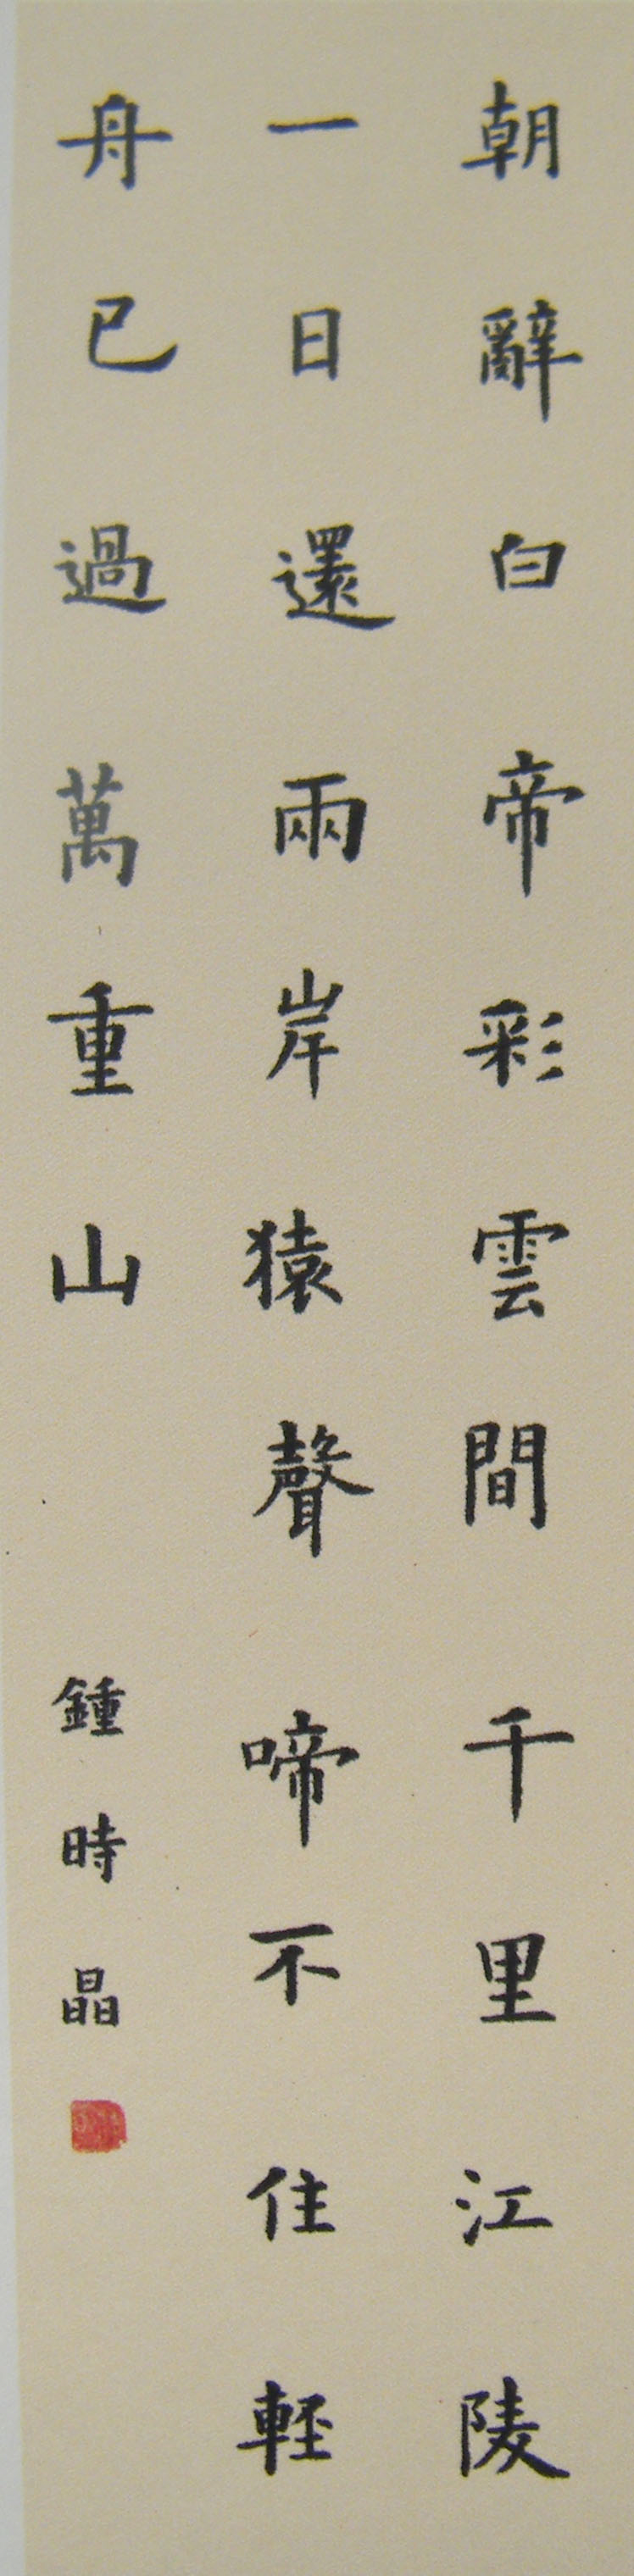 朝辭白帝彩雲間千里江陵
一日還兩岸猿聲啼不住輕
舟已過萬重山
鍾時晶